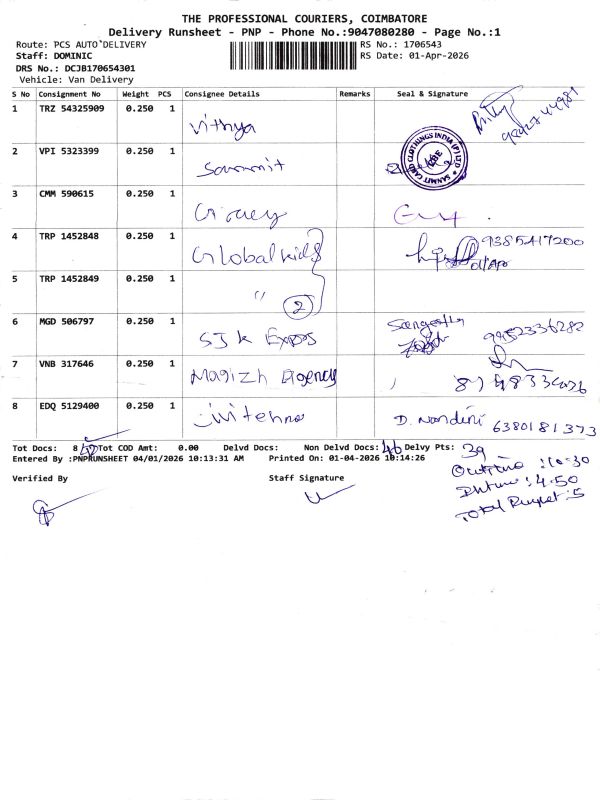 THE PROFESSIONAL COURIERS, COIMBATORE
Delivery Runsheet - PNP - Phone No.:9047080280 - Page No.:1
Route: PCS AUTO DELIVERY RS No.: 1706543
Staff: DOMINIC RS Date: 01-Apr-2026
DRS No.: DCJB170654301
Vehicle: Van Delivery
S No Consignment No Weight PCS Consignee Details Remarks Seal & Signature
1 TRZ 54325909 0.250 1 Vithya
2 VPI 5323399 0.250 1 Sammit SANMIT CARD CLOTHINGS INDIA (P) LTD CBE
3 CMM 590615 0.250 1
4 TRP 1452848 0.250 1 Global kids 9385417200
5 TRP 1452849 0.250 1 " 2
6 MGD 506797 0.250 1 SJK Expos Sangeetha 9952336282
7 VNB 317646 0.250 1 Magizh Agency
8 EDQ 5129400 0.250 1 D. Nandini 6380181373
Tot Docs: 8 Tot COD Amt: 0.00 Delvd Docs: Non Delvd Docs: 46 Delvy Pts: 39
Entered By :PNPRUNSHEET 04/01/2026 10:13:31 AM Printed On: 01-04-2026 10:14:26
:10-30
Verified By Staff Signature
: 4.50
Total :5